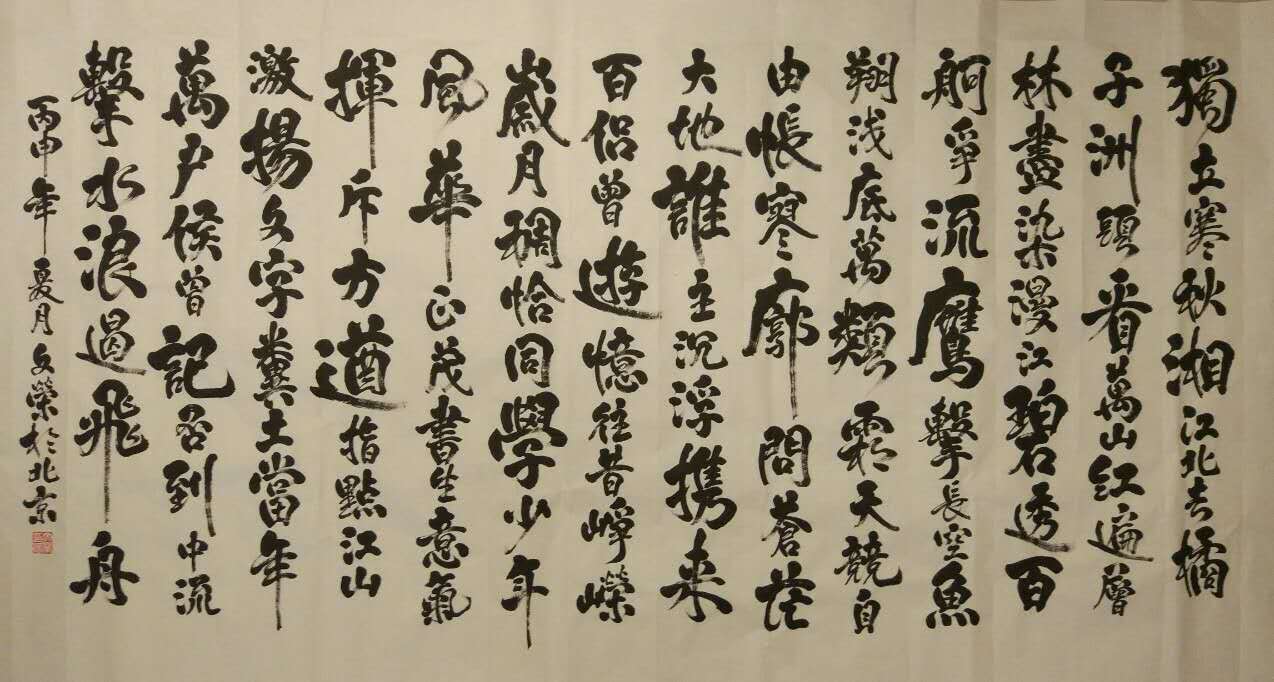 獨立寒秋湘江北去橘
子洲頭看萬山紅遍層
林盡染漫江碧透百
舸爭流鷹擊長空魚
翔浅底萬類霜天競自
由帳寥廓問蒼茫
大地誰主沉浮携来
百侣曾遊憶往昔崢嶸
歲月稠恰同學少年
風華正茂書生意氣
揮斥方遒指點江山
激揚文字糞土當年
萬户候曾記否到中流
擊水浪遏飛舟
丙申年夏月文榮於北京